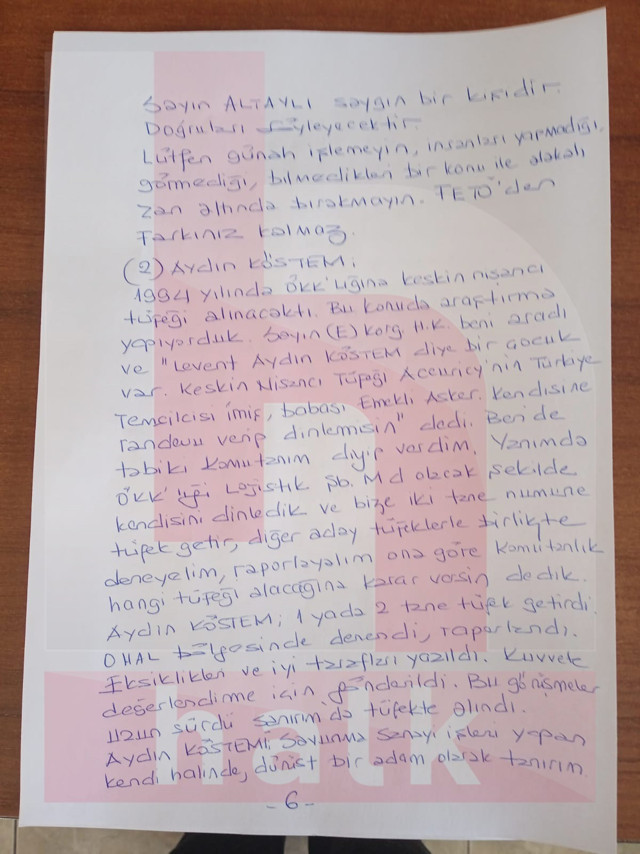 Sayın ALTAYLI saygın bir kişidir.
Doğruları söyleyecektir.
Lütfen günah işlemeyin, insanları yapmadığı,
görmediği, bilmedikleri bir konu ile alakalı
zan altında bırakmayın. FETÖ'den
Farkınız kalmaz.
(2) Aydın KÖSTEM;
1994 yılında ÖKK'lığına keskin nişancı
tüfeği alınacaktı. Bu konuda araştırma
yapıyorduk. Sayın (E) Korg. H.K. beni aradı
ve "Levent Aydın KÖSTEM diye bir çocuk
var. Keskin Nişancı Tüfeği Accuricy'nin Türkiye
Temcilcisi imiş, babası Emekli Asker. Kendisine
randevu verip dinlemisin" dedi. Ben de
tabiki komutanım diyip verdim. Yanımda
ÖKK'lığı Lojistik Şb. Md olacak şekilde
kendisini dinledik ve bize iki tane numune
tüfek getir, diğer aday tüfeklerle birlikte
deneyelim, raporlayalım ona göre komutanlık
hangi tüfeği alacağına karar versin dedik.
Aydın KÖSTEM; 1 yada 2 tane tüfek getirdi.
OHAL bölgesinde denendi, raporlandı.
Eksiklikleri ve iyi tarafları yazıldı. Kuvvete
değerlendirme için gönderildi. Bu görüşmeler
uzun sürdü sanırım da tüfekte alındı.
Aydın KÖSTEMİ, Savunma Sanayi işleri yapan
kendi halinde, dürüst bir adam olarak tanırım
- 6 -
halk